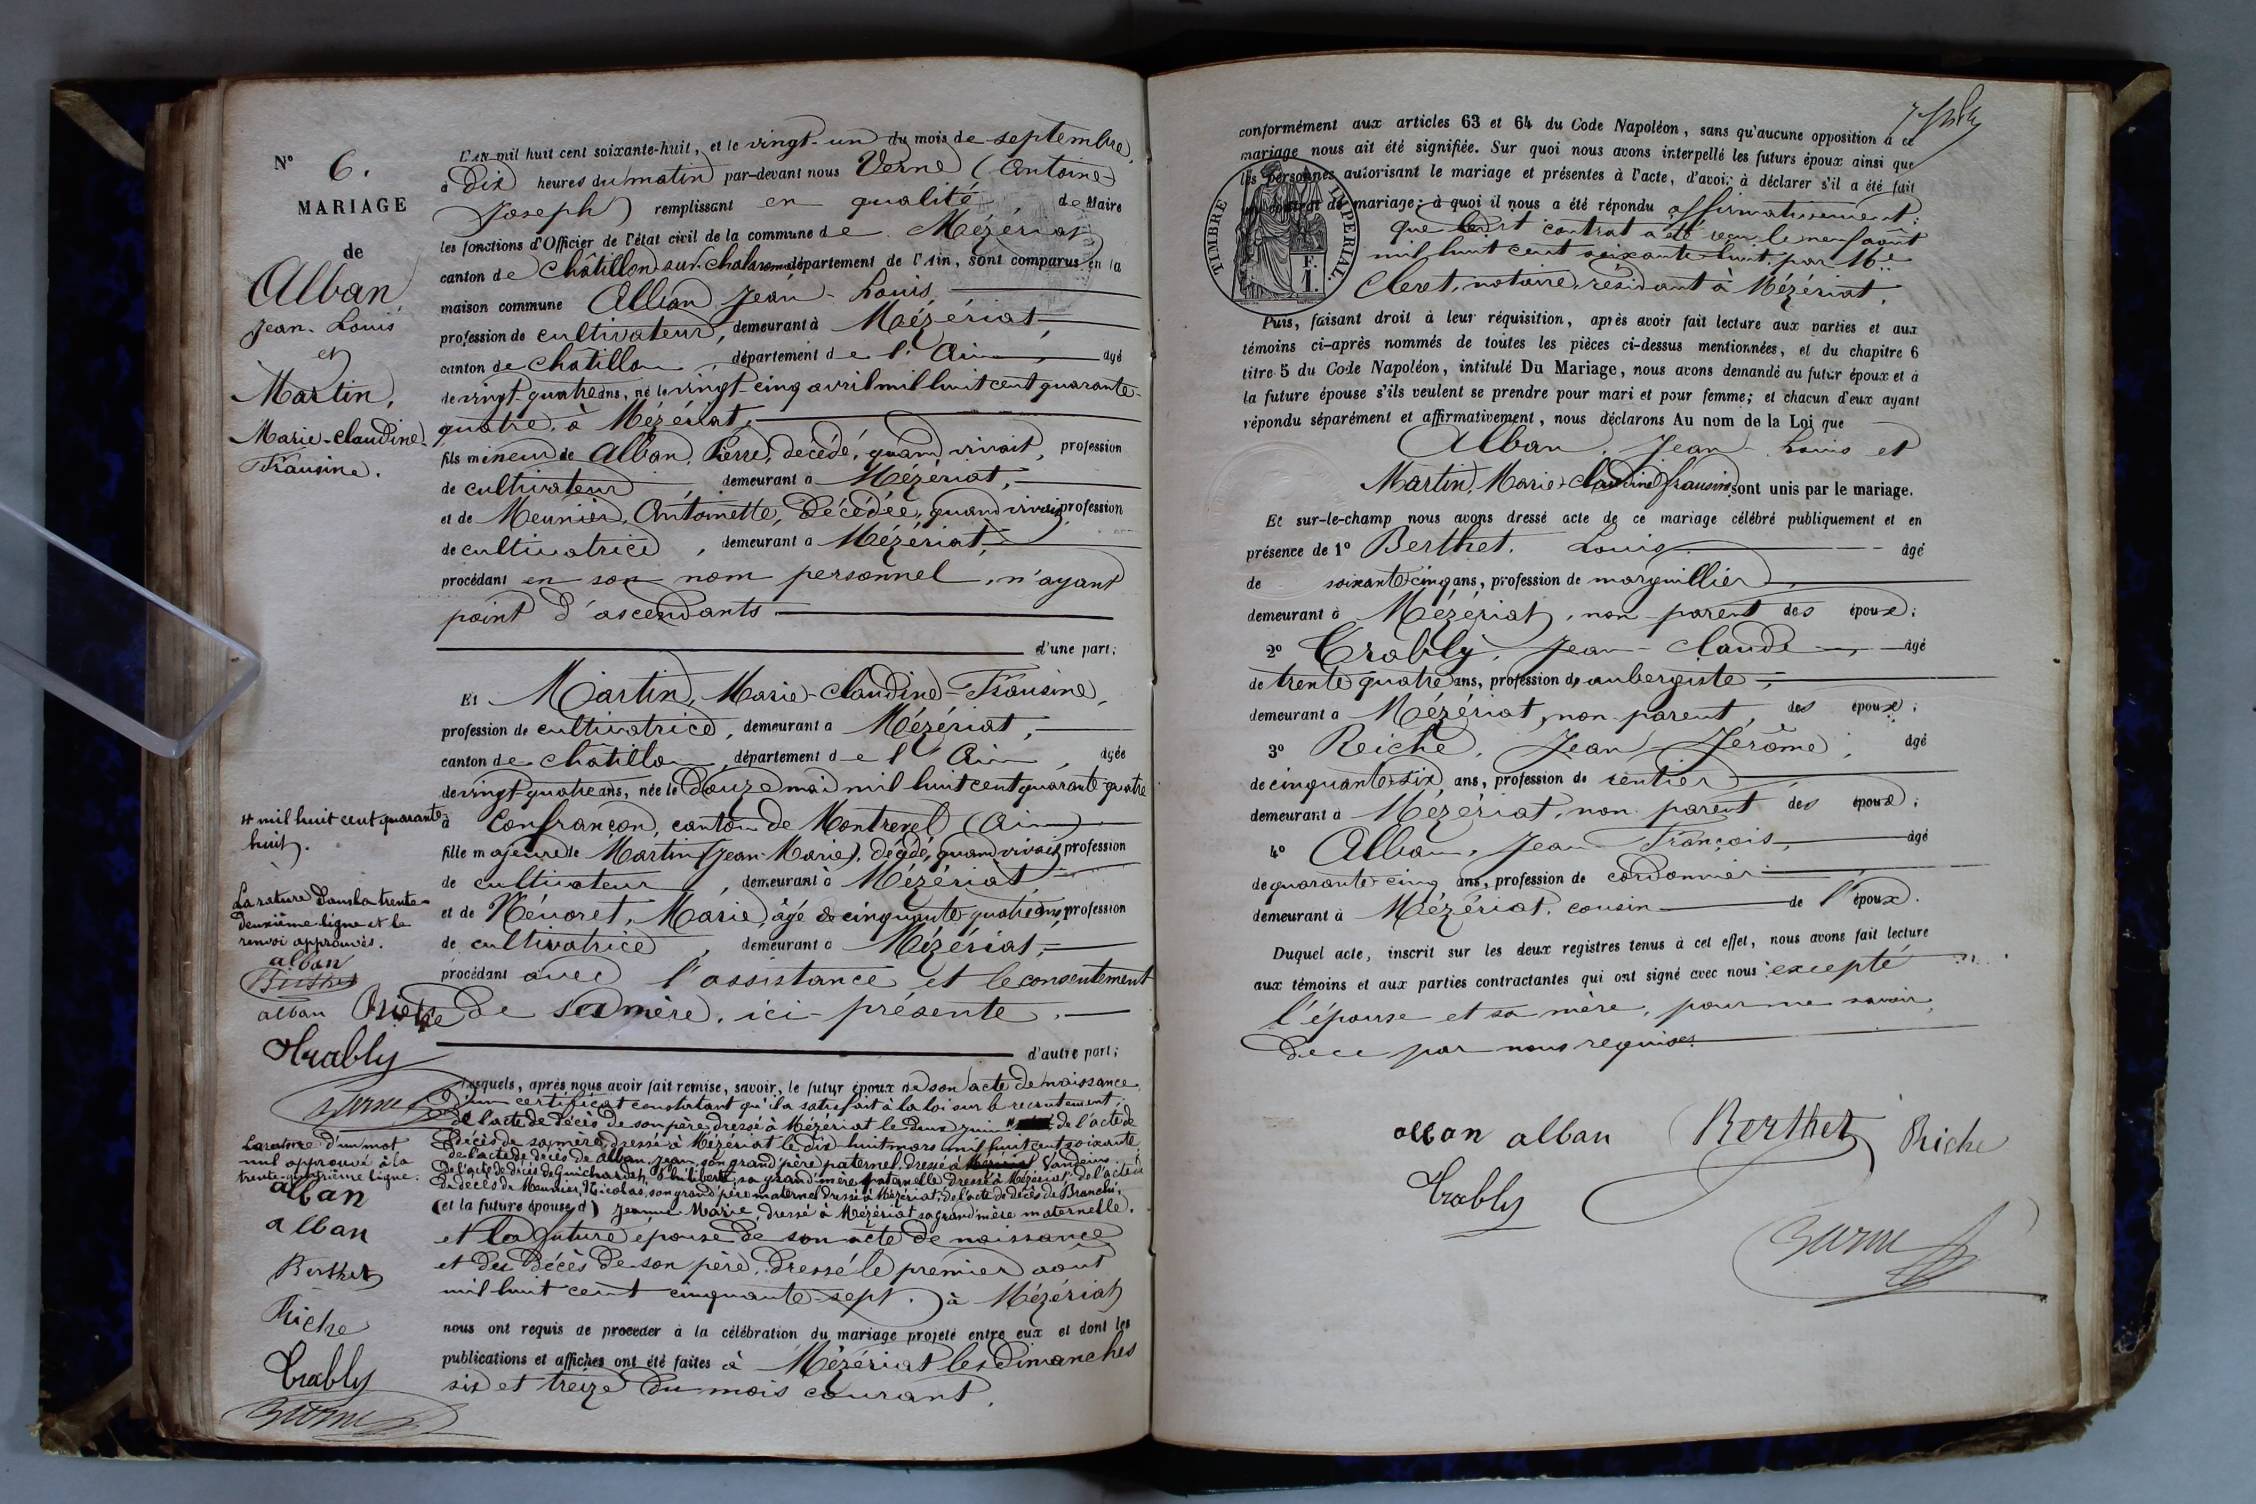 N° 6.
MARIAGE
de
Alban
Jean-Louis
et
Martin,
Marie-Claudine-
Frausine.
# mil huit cent quarante-
huit.
La rature dans la trente-
deuxième ligne et le
renvoi approuvés.
alban
Berthet
alban Riche
Trably
Verne
La rature d'un mot
nul approuvé à la
trente-quatrième ligne.
alban
alban
Berthet
Riche
Trably
Verne
L'an mil huit cent soixante-huit, et le vingt-un du mois de septembre,
à dix heures du matin par-devant nous Verne (Antoine-
Joseph) remplissant en qualité de Maire
les fonctions d'Officier de l'état civil de la commune de Mézériat
canton de Châtillon-sur-Chalaronne département de l'Ain, sont comparus en la
maison commune Alban Jean-Louis
profession de cultivateur, demeurant à Mézériat,
canton de Châtillon, département de l'Ain, agé
de vingt-quatre ans, né le vingt-cinq avril mil huit cent quarante-
quatre, à Mézériat,
fils mineur de Alban, Pierre, décédé, quand vivait, profession
de cultivateur, demeurant à Mézériat,
et de Meunier, Antoinette, décédée, quand vivait, profession
de cultivatrice, demeurant à Mézériat,
procédant en son nom personnel, n'ayant
point d'ascendants
d'une part;
Et Martin, Marie-Claudine-Frausine,
profession de cultivatrice, demeurant à Mézériat,
canton de Châtillon, département de l'Ain, agée
de vingt-quatre ans, née le douze mai mil huit cent quarante-quatre
à Confrançon, canton de Montrevel (Ain)
fille majeure de Martin (Jean-Marie), décédé, quand vivait, profession
de cultivateur, demeurant à Mézériat,
et de Névoret, Marie, âgé de cinquante-quatre ans, profession
de cultivatrice, demeurant à Mézériat,
procédant avec l'assistance et le consentement
de sa mère, ici-présente.
d'autre part;
Lesquels, après nous avoir fait remise, savoir, le futur époux de son acte de naissance,
d'un certificat constatant qu'il a satisfait à la loi sur le recrutement;
de l'acte de décès de son père, dressé à Mézériat le deux juin # de l'acte de
décès de sa mère, dressé à Mézériat le dix-huit mars mil huit cent soixante
de l'acte de décès de Alban Jean, son grand père paternel, dressé à Mézériat Vandeins.
de l'acte de décès de Guichardet, Philiberte, sa grand'mère paternelle dressé à Mézériat, de l'acte
de décès de Meunier, Nicolas, son grand père maternel dressé à Mézériat, de l'acte de décès de Branche,
(et la future épouse d) Jeanne-Marie, dressé à Mézériat sa grand'mère maternelle.
et la future épouse de son acte de naissance
et des décès de son père, dressé le premier août
mil huit cent cinquante-sept, à Mézériat
nous ont requis de procéder à la célébration du mariage projeté entre eux et dont les
publications et affiches ont été faites à Mézériat les dimanches
six et treize du mois courant.
conformément aux articles 63 et 64 du Code Napoléon, sans qu'aucune opposition à ce
mariage nous ait été signifiée. Sur quoi nous avons interpellé les futurs époux ainsi que
les personnes autorisant le mariage et présentes à l'acte, d'avoir à déclarer s'il a été fait
un contrat de mariage; à quoi il nous a été répondu affirmativement:
que ledit contrat a été reçu le neuf août
mil huit cent soixante-huit, par Me
Cleret, notaire, résidant à Mézériat.
TIMBRE IMPERIAL.
F.
1.
Puis, faisant droit à leur réquisition, après avoir fait lecture aux parties et aux
témoins ci-après nommés de toutes les pièces ci-dessus mentionnées, et du chapitre 6
titre 5 du Code Napoléon, intitulé Du Mariage, nous avons demandé au futur époux et à
la future épouse s'ils veulent se prendre pour mari et pour femme; et chacun d'eux ayant
répondu séparément et affirmativement, nous déclarons Au nom de la Loi que
Alban, Jean-Louis et
Martin, Marie-Claudine-frausine, sont unis par le mariage.
Et sur-le-champ nous avons dressé acte de ce mariage célébré publiquement et en
présence de 1° Berthet, Louis, âgé
de soixante cinq ans, profession de marguillier,
demeurant à Mézériat, non-parent des époux;
2° Trably, Jean-Claude, âgé
de trente quatre ans, profession d'aubergiste,
demeurant à Mézériat, non parent, des époux;
3° Reiche, Jean-Jerôme, âgé
de cinquante-six ans, profession de rentier
demeurant à Mézériat, non parent des époux;
4° Alban, Jean-François, âgé
de quarante-cinq ans, profession de cordonnier
demeurant à Mézériat, cousin de l'époux.
Duquel acte, inscrit sur les deux registres tenus à cet effet, nous avons fait lecture
aux témoins et aux parties contractantes qui ont signé avec nous excepté
l'épouse et sa mère, pour ne savoir,
de ce par nous requises.
alban alban Berthet Riche
Trably
Verne